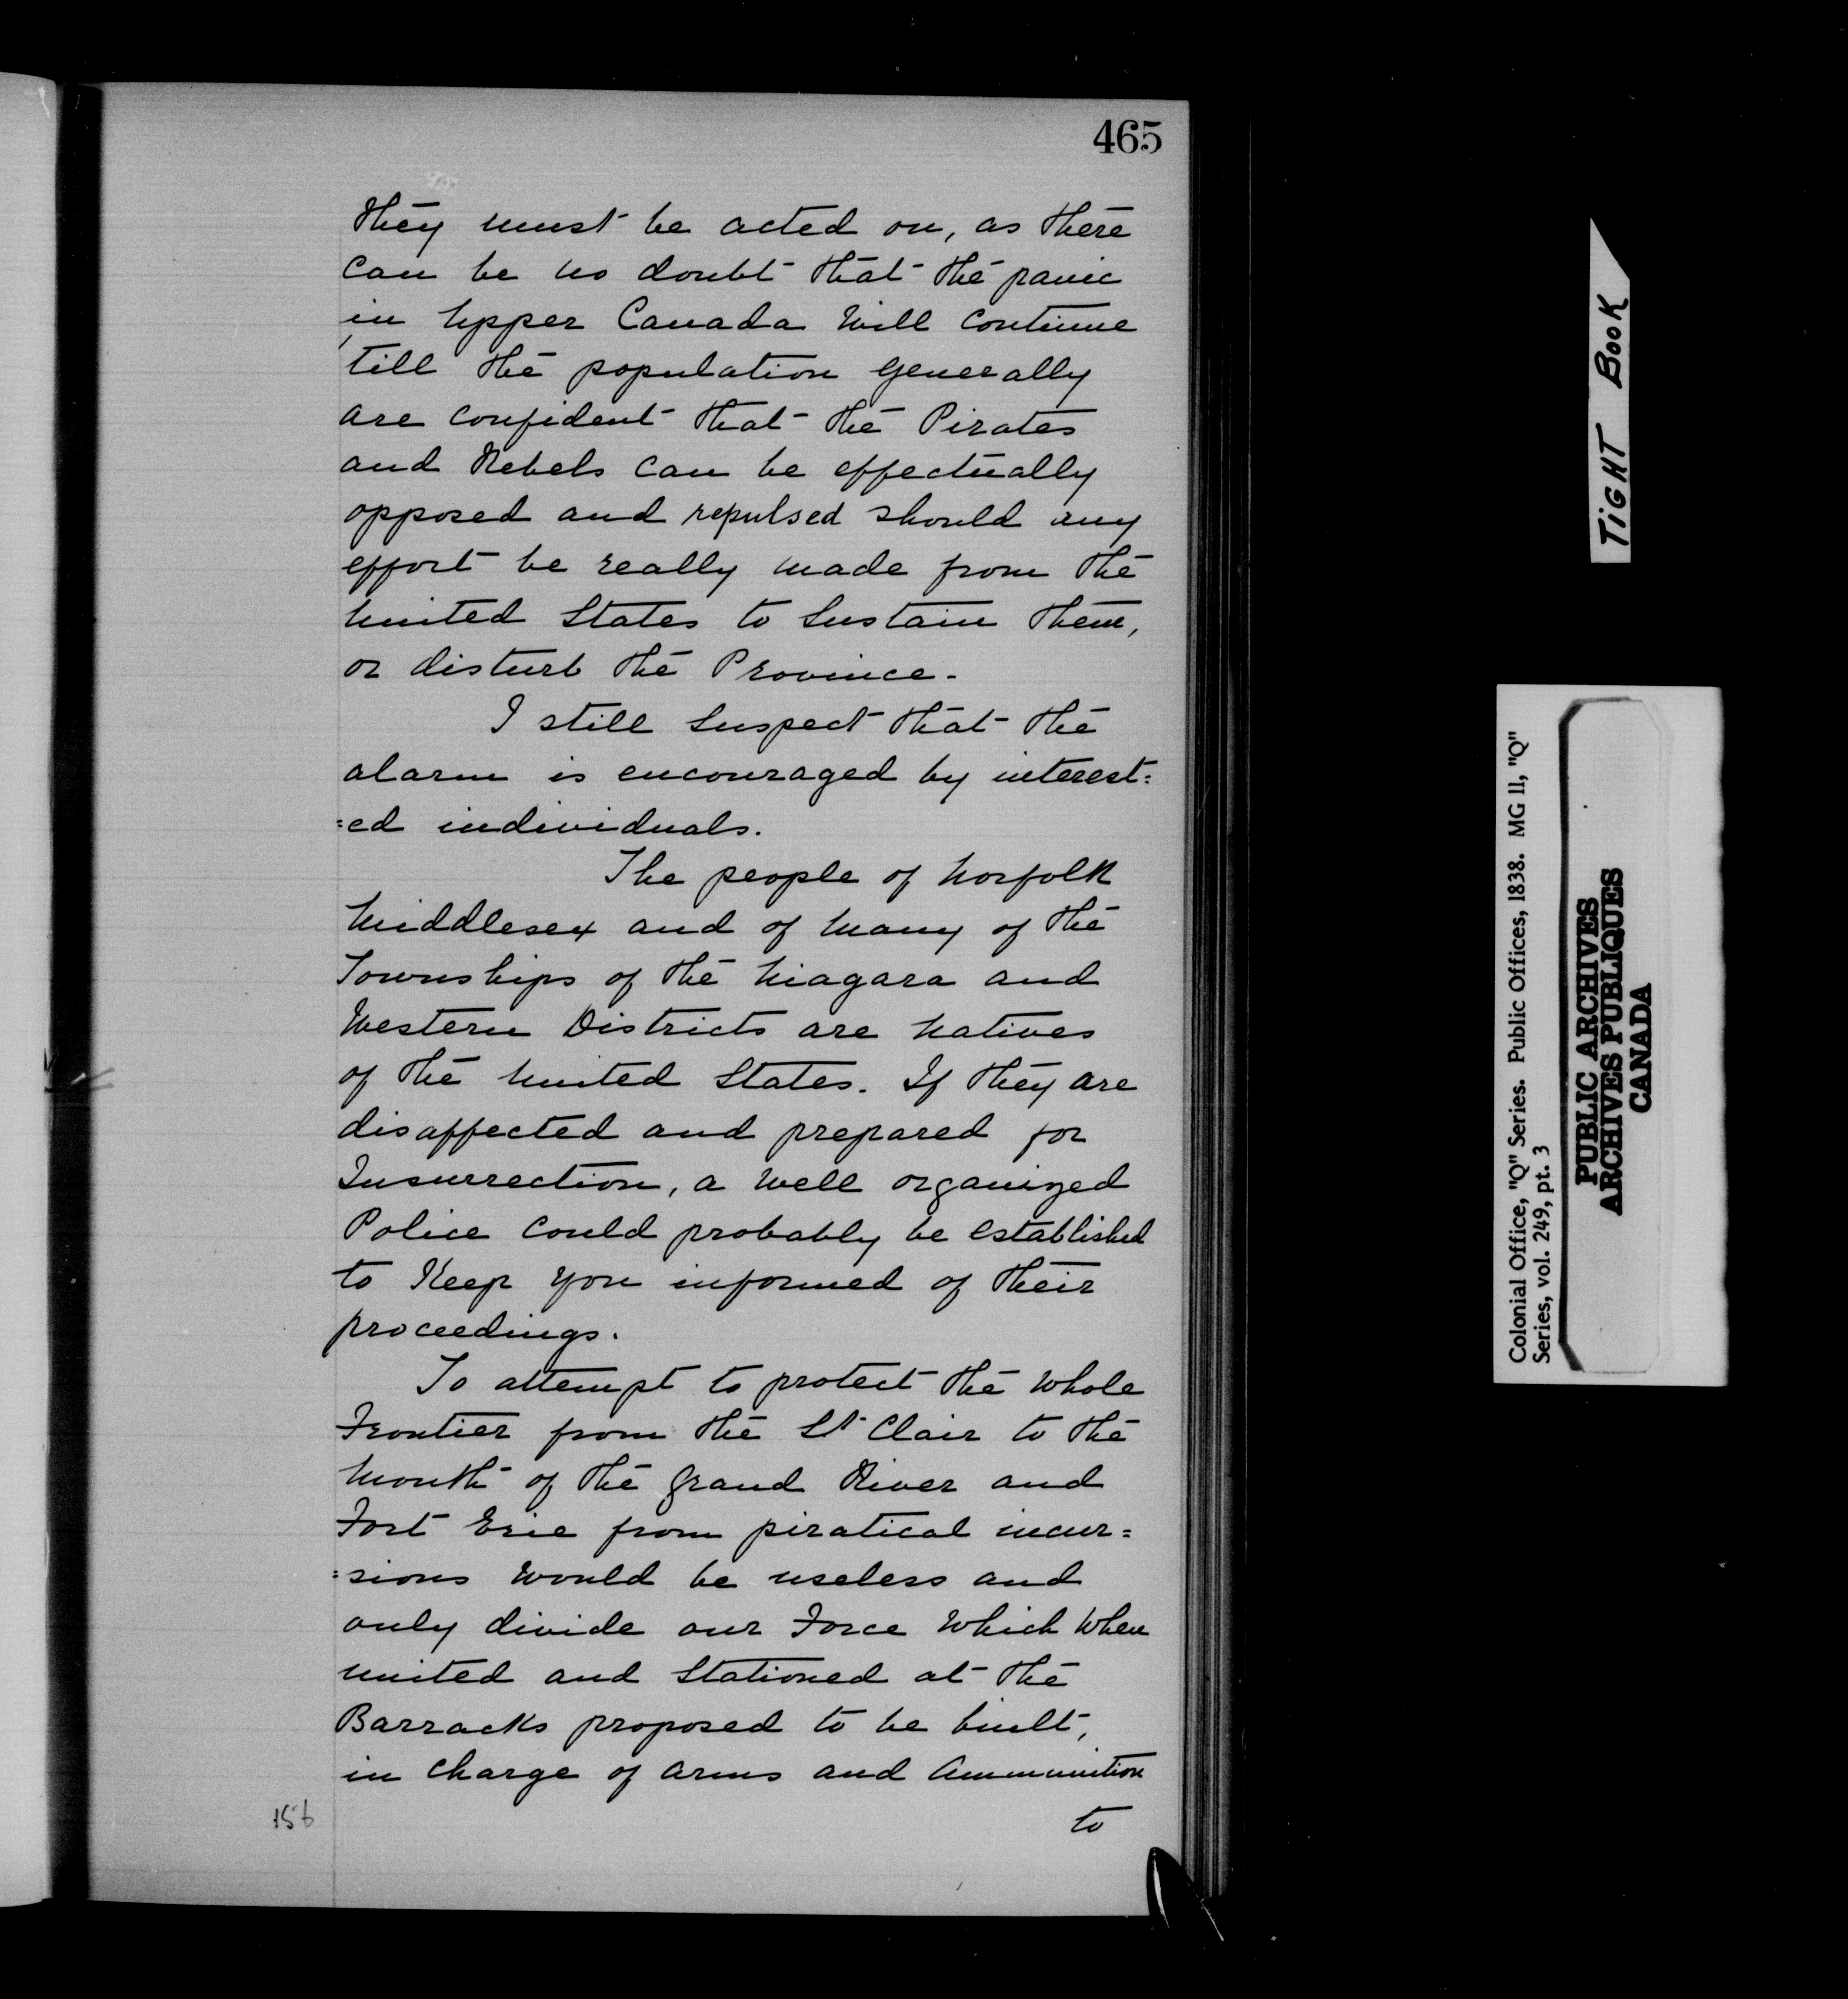 465
they must be acted on, as there
can be no doubt that the panic
in Upper Canada will continue
'till the population generally
are confident that the Pirates
and Rebels can be effectually
opposed and repulsed should any
effort be really made from the
United States to sustain them,
or disturb the Province.
I still suspect that the
alarm is encouraged by interest=
=ed individuals.
The people of Norfolk
Middlesex and of many of the
Townships of the Niagara and
Western Districts are natives
of the United States. If they are
disaffected and prepared for
Insurrection, a well organized
Police could probably be established
to Keep you informed of their
proceedings.
To attempt to protect the whole
Frontier from the St Clair to the
mouth of the Grand River and
Fort Erie from piratical incur=
=sions would be useless and
only divide our Force which when
united and stationed at the
Barracks proposed to be built,
in charge of arms and Ammunition
to
156
TIGHT BOOK
Colonial Office, "Q" Series. Public Offices, 1838. MG 11, "Q"
Series, vol. 249, pt. 3
PUBLIC ARCHIVES
ARCHIVES PUBLIQUES
CANADA